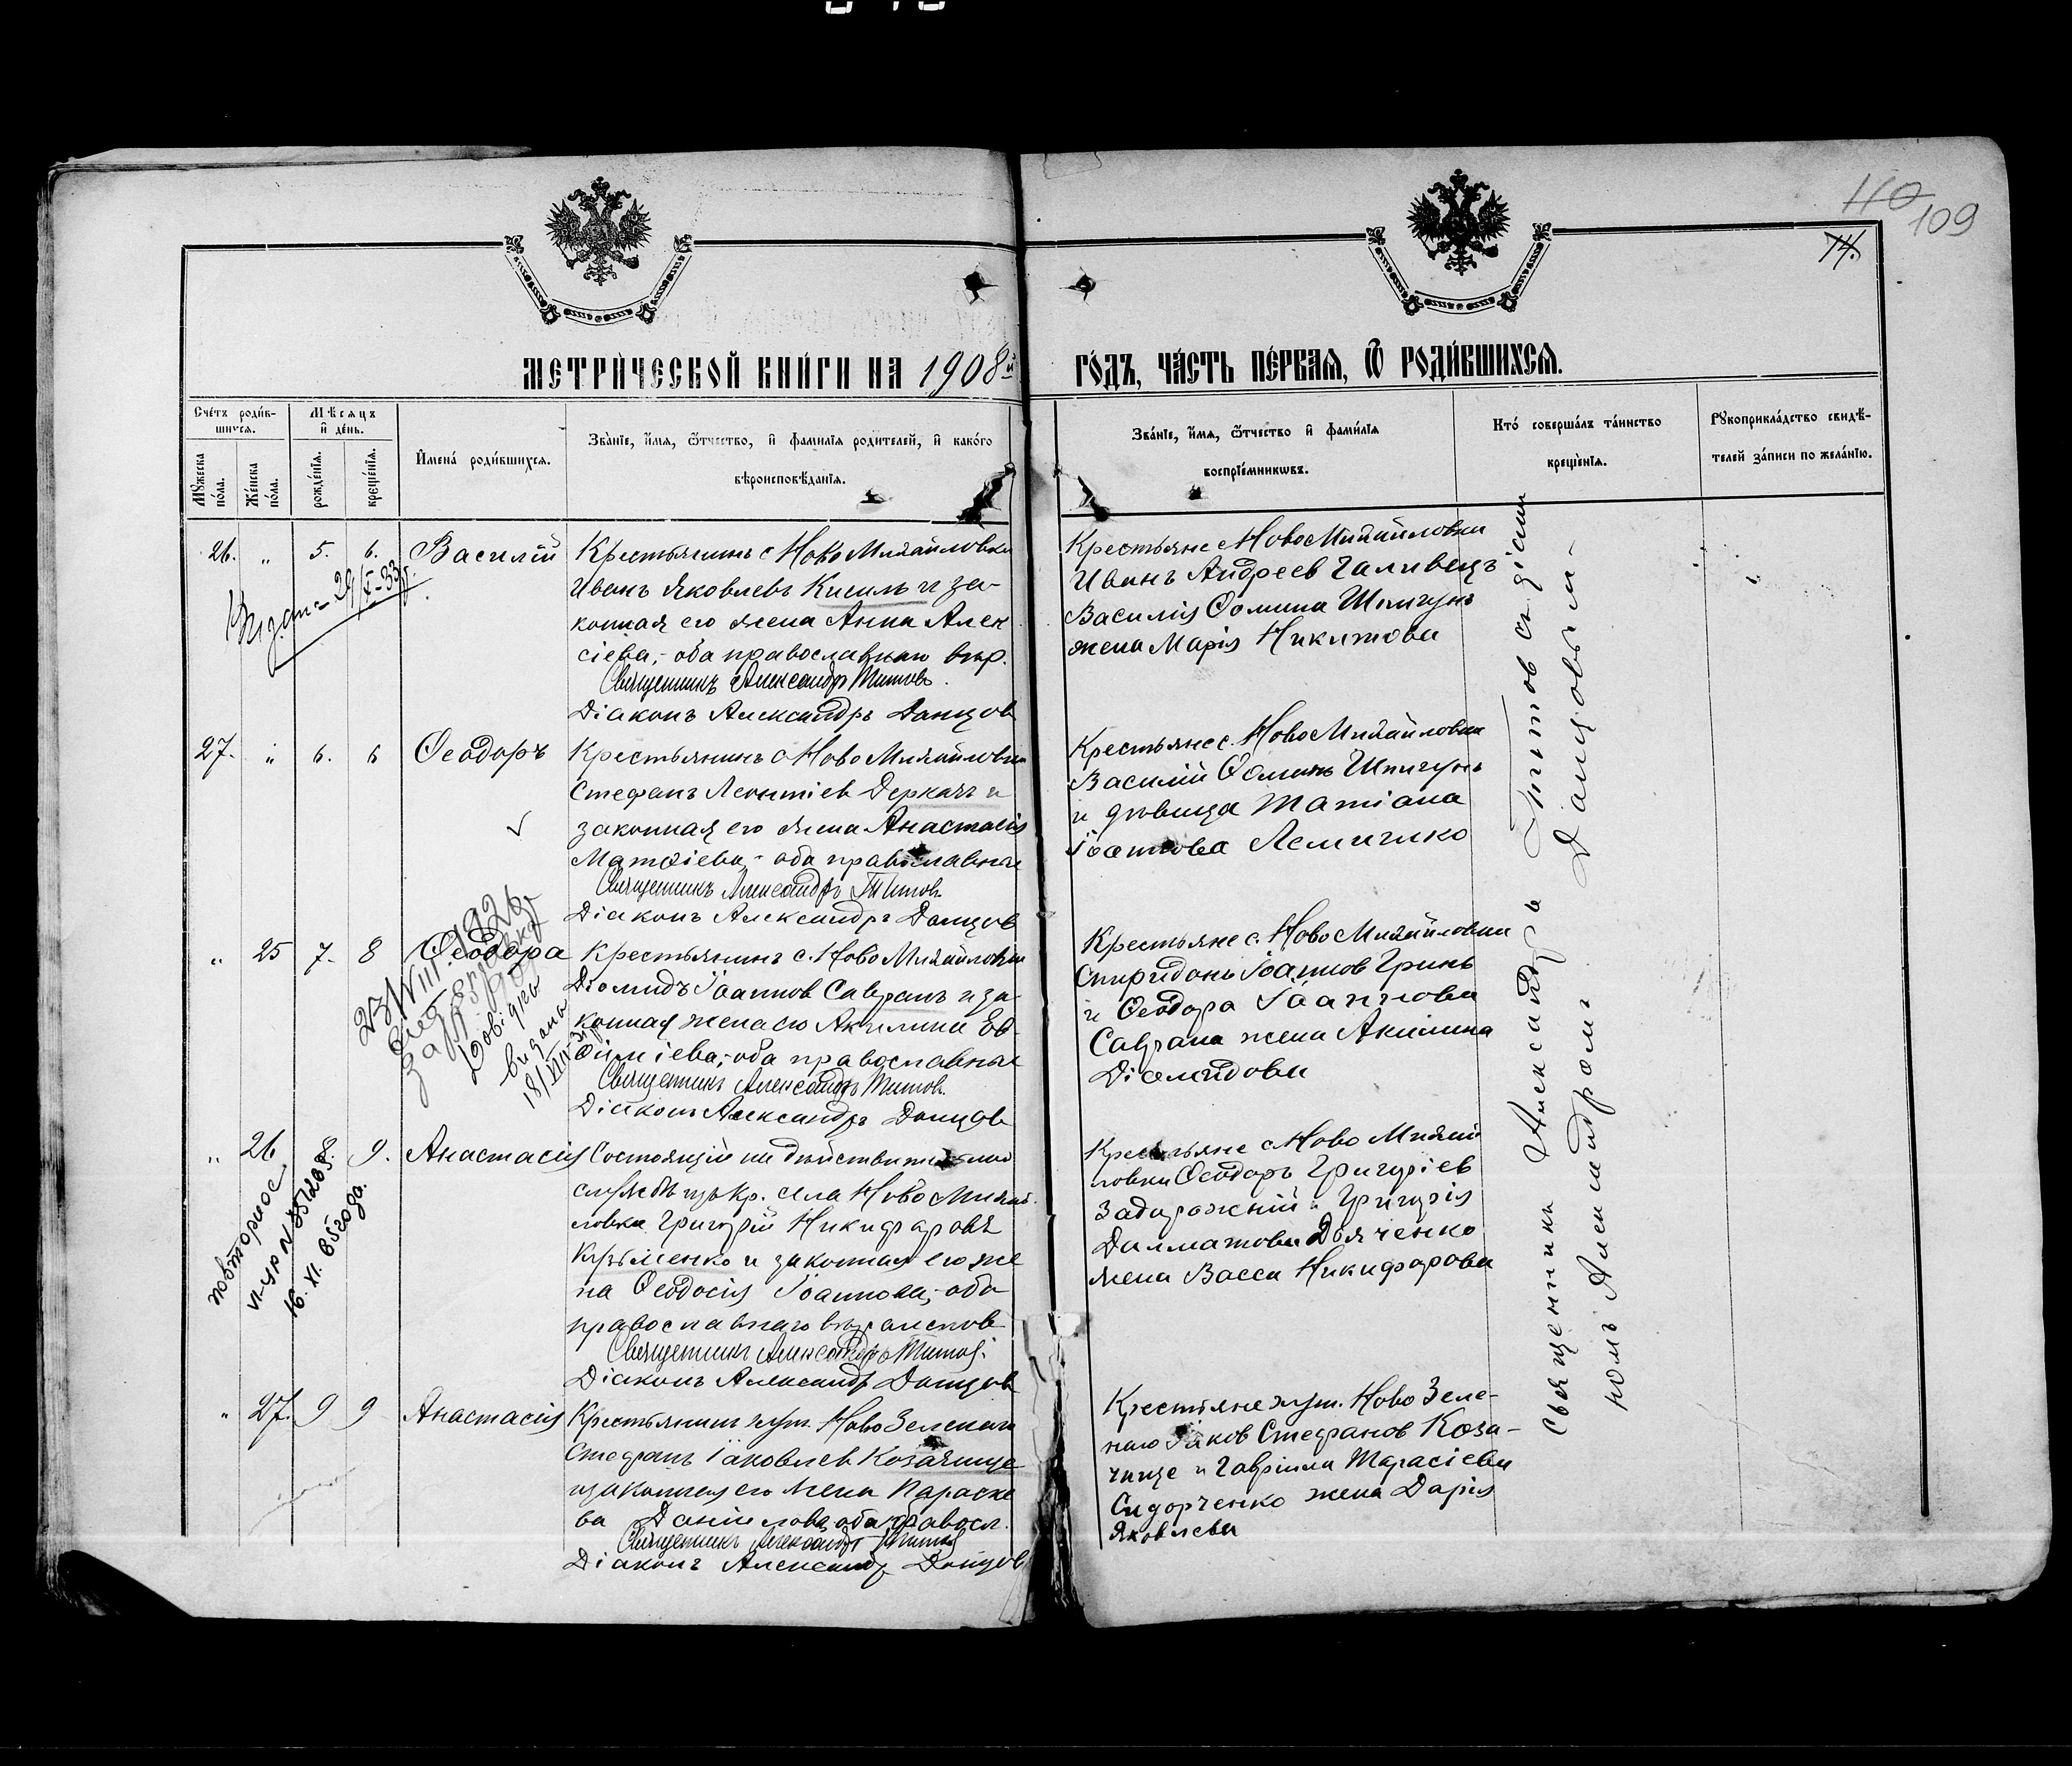 110
109
74.
МЕТРИ́ЧЕСКОЙ КНИ́ГИ НА 1908й
ГО́ДЪ, ЧА́СТЬ ПЕ́РВАЯ, Ѿ РОДИ́ВШИХСЯ.
Сче́тъ роди́в-
шихся.
Мѣ́сяцъ
и де́нь.
Мꙋ́жеска
по́ла.
Же́нска
по́ла.
рожде́нїя.
креще́нїя.
И҆мена́ роди́вшихся.
Зва́нїе, и҆́мя, ѻ҆́тчество, и҆ фами́лїя родителей, и҆ како́го
вѣроисповѣ́данїя.
Зва́нїе, и҆́мя, ѻ҆́тчество и҆ фами́лїя
воспрїе́мниковъ.
Кто́ соверша́лъ та́инство
креще́нїя.
Рꙋкоприкла́дство свидѣ́-
телей за́писи по жела́нїю.
26. " 5. 6. Василій
Крестьянинъ с Ново Михайловки
Иванъ Яковлевъ Кисиль и за-
конная его жена Анна Алек
сіева,- оба православнаго вѣр.
Священникъ Александръ Титовъ.
Діаконъ Александръ Данцов
Крестьяне с Ново Михайловки
Иванъ Андреев Галивецъ
Василія Ѳомина Шпигунъ
жена Марія Никитова
27. " 6. 6 Ѳеодоръ
Крестьянинъ с Ново Михайловки
Стефанъ Леонтіев Деркачъ и
законная его жена Анастасія
Матѳіева,- оба православные
Священникъ Александръ Титов
Діаконъ Александръ Данцов
Крестьяне с. Ново Михайловки
Василій Ѳоминъ Шпигунъ
и дѣвица Татіана
Іоаннова Лемишко
" 25 7. 8 Ѳеодора
Крестьянинъ с. Ново Михайловки
Діомидъ Іоаннов Савранъ и за-
конная жена его Акилина Ев-
ѳиміева,- оба православные
Священникъ Александръ Титов.
Діаконъ Александръ Данцов
Крестьяне с. Ново Михайловки
Спиридонъ Іоаннов Гринь
и Ѳеодора Іоаннова
Саврана жена Акилина
Діомидова
23/VIII 1926
Довідка
видана
18/VIII-
" 26 8. 9. Анастасія
Состоящій на дѣйствительной
службѣ изъ кр. села Ново Михай-
ловки Григорій Никифоровъ
Кирьменко и законная его же
на Ѳеодосія Іоаннова,- оба
православнаго вѣроисповѣ
Священникъ Александръ Титов.
Діаконъ Александръ Данцов
Крестьяне с Ново Михай
ловки Ѳеодоръ Григоріев
Задорожній и Григорія
Далматова Дьяченко
жена Васса Никифорова
повторное
16. XI. 65 года.
" 27. 9 9 Анастасія
Крестьянинъ хут. Ново Зеленаго
Стефанъ Іаковлев Козачище
и законная его жена Параске
ва Даніилова, оба правосл.
Священникъ Александръ Титов
Діаконъ Александръ Данцов
Крестьяне хут. Ново Зеле-
наго Іаков Стефанов Коза-
чище и Гавріила Тарасіева
Сидорченко жена Дарія
Яковлева
Священникъ Александръ Титов съ діако-
номъ Александромъ Данцовым-